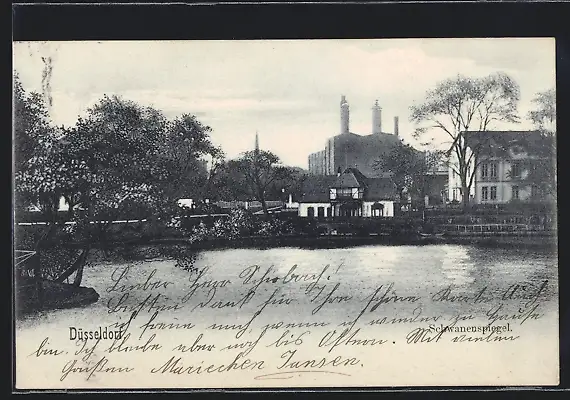 Lieber Herr Schobach!
Besten Dank für Ihre schöne Karte. Auch
ich freue mich, wenn ich wieder zu Hause
bin. Ich bleibe aber noch bis Ostern. Mit vielen
Grüßen Mariechen Jansen.
Düsseldorf.
Schwanenspiegel.